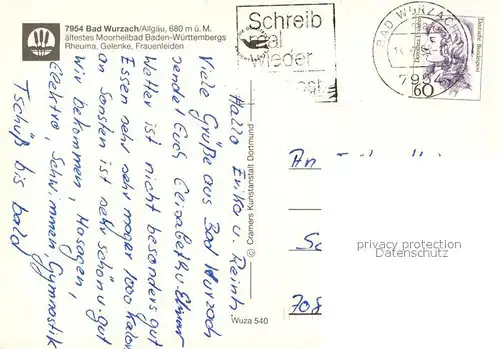 7954 Bad Wurzach/Allgäu, 680 m ü. M.
ältestes Moorheilbad Baden-Württembergs
Rheuma, Gelenke, Frauenleiden
Schreib
mal
wieder
BAD WURZACH
795
Deutsche Bundespost
60
Hallo Erika u. Reinh.
Viele Grüße aus Bad Wurzach
sendet Euch Elisabeth u. Elmar
Wetter ist nicht besonders gut
Essen sehr sehr mager 1000 Kalor.
an Sonsten ist sehr schön u. gut
Wir bekommen, Massagen,
Elektro, Schwimmen, Gymnastik
Tschüß bis bald
© Cramers Kunstanstalt Dortmund
Wuza 540
An
708
privacy protection
Datenschutz